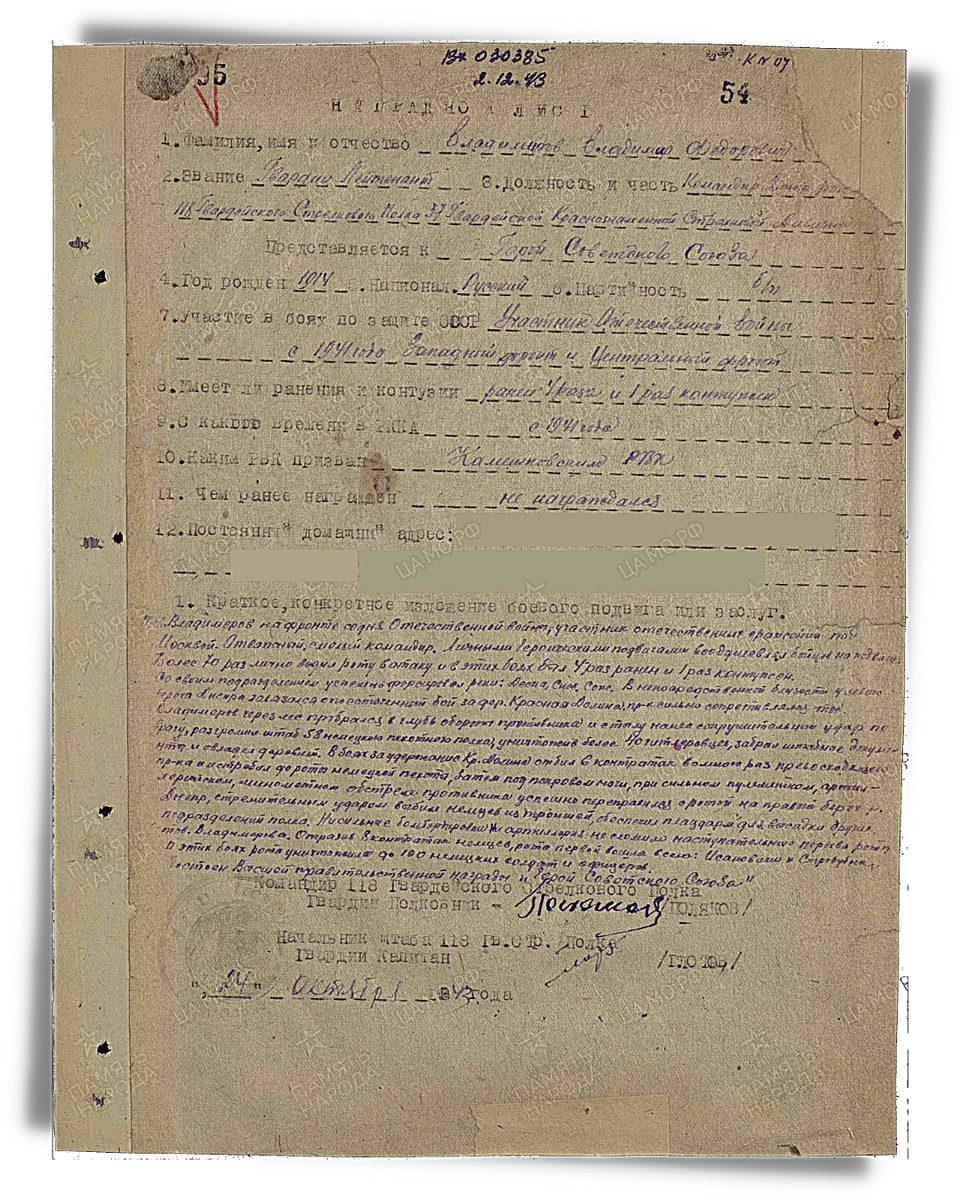 Вх 030385
2.12.43
95
54
НАГРАДНОЙ ЛИСТ
1.Фамилия,имя и отчество Владимиров Владимир Федорович
2.Звание Гвардии Лейтенант 3.Должность и часть Командир
118 Гвардейского Стрелкового Полка 37 Гвардейской Краснознаменной Стрелковой Дивизии
Представляется к Герой Советского Союза
4.Год рожден 1914 5.Национал. Русский 6.Партийность б/п
7.Участие в боях по защите СССР Участник Отечественной войны
с 1941 года Западный фронт и Центральный фронт
8.Имеет ли ранения и контузии ранен 4 раза и 1 раз контужен
9.С какого времени в РККА с 1941 года
10.Каким РВК призван Камешковским РВК
11. Чем ранее награжден не награждался
12.Постоянный домашний адрес:
1. Краткое,конкретное изложение боевого подвига или заслуг.
Тов. Владимиров на фронте со дня Отечественной войны, участник отечественных сражений под
Москвой. Отважный, смелый командир. Личными героическими подвигами воодушевлял бойцов на подвиги.
Более 10 раз лично водил роту в атаку и в этих боях был 4 раз ранен и 1 раз контужен.
Со своим подразделением успешно форсировал реки: Десна, Сож. В непосредственной близости у левого
берега Днепра завязался ожесточенный бой за дер. Красная Долина, пр-к сильно сопротивлялся, тов.
Владимиров через лес пробрался в глубь обороны противника и с тылу нанес сокрушительный удар по
врагу, разгромил штаб 58 немецкого пехотного полка, уничтожив более 40 гитлеровцев, забрал штабные докумен-
ты и овладел деревней. В боях за удержание Кр. Долина отбил 8 контратак в много раз превосходящего
пр-ка и истребил до роты немецкой пехоты, затем под покровом ночи, при сильном пулеметном, артил-
лерийском, минометном обстреле противника успешно переправился с ротой на правый берег р.
Днепр, стремительным ударом выбил немцев из траншей, обеспечил плацдарм для высадки других
подразделений полка. Ни сильные бомбардировки и артиллерия не сломили наступательного порыва роты
тов. Владимирова. Отразив 8 контратак немцев, рота первой вошла в села: Исаковичи и
В этих боях рота уничтожила до 100 немецких солдат и офицеров.
Достоин Высшей правительственной награды "Герой Советского Союза"
Командир 118 Гвардейского Стрелкового Полка
Гвардии Полковник - /ПОЛЯКОВ/
Начальник штаба 118 Гв.Стр. Полка
Гвардии Капитан
"24" Октября 1943 года
ПАМЯТЬ НАРОДА
ЦАМО.РФ